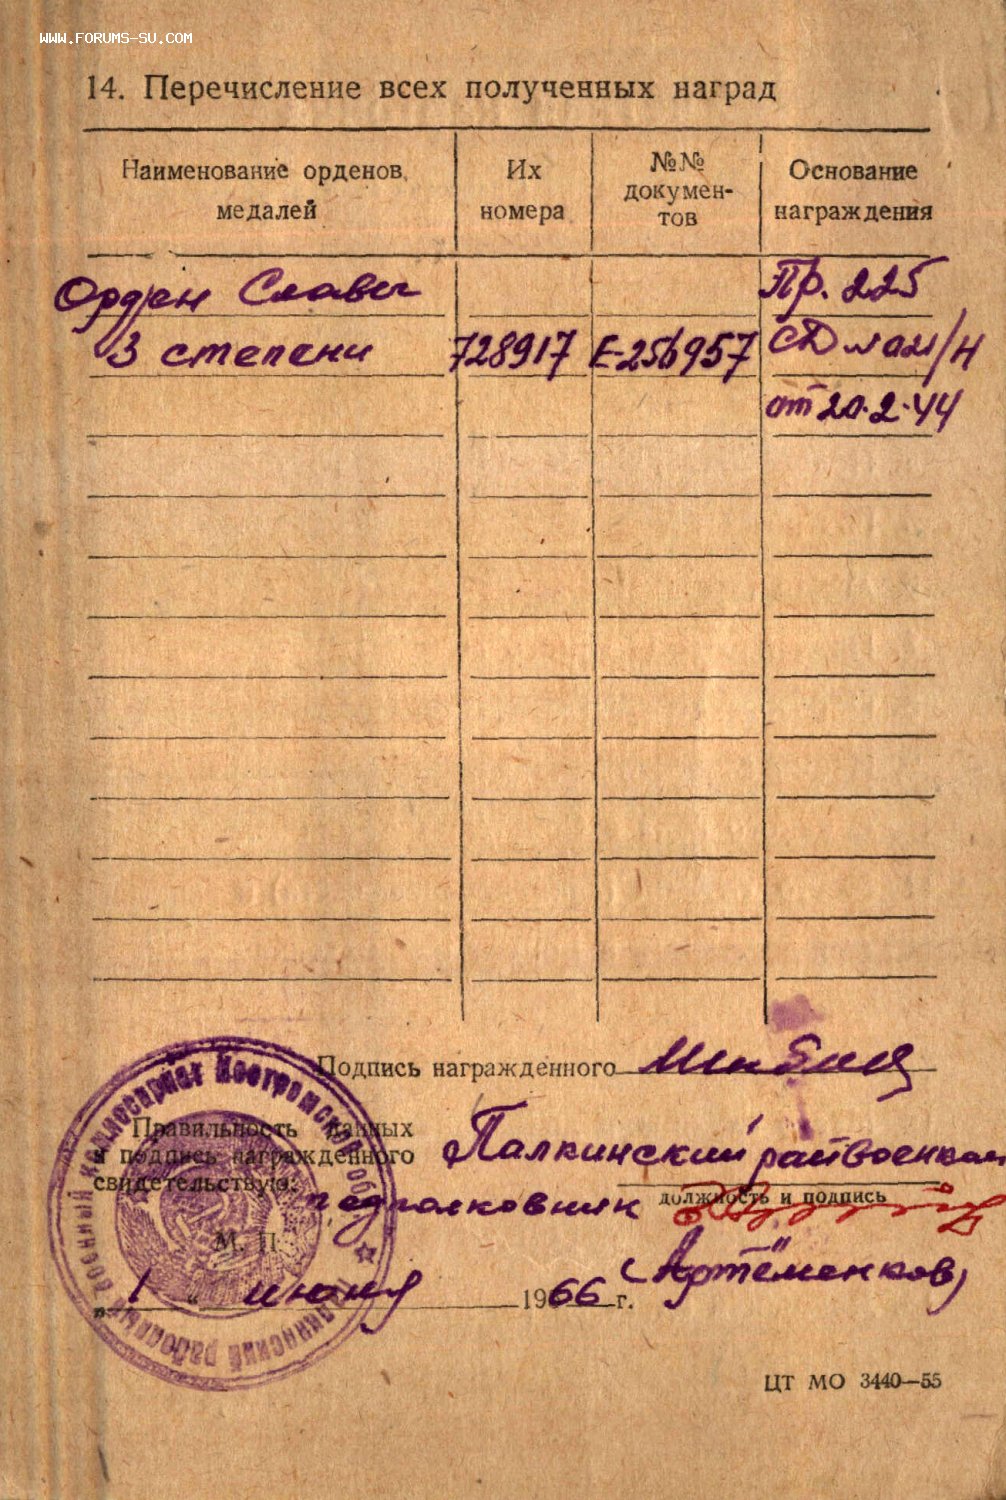 WWW.FORUMS-SU.COM
14. Перечисление всех полученных наград
Наименование орденов, медалей
Их номера
№№ докумен-тов
Основание награждения
Орден Славы
Пр. 225
3 степени 728917 Е-256957 СД
от 20.2.44
Подпись награжденного
Правильность данных
и подпись награжденного
свидетельствую:
Палкинский райвоенком
подполковник
должность и подпись
М. П.
(Артёменков)
„ 1 “ июня 1966 г.
Палкинский районный военный комиссариат Костромской обл.
ЦТ МО 3440—55